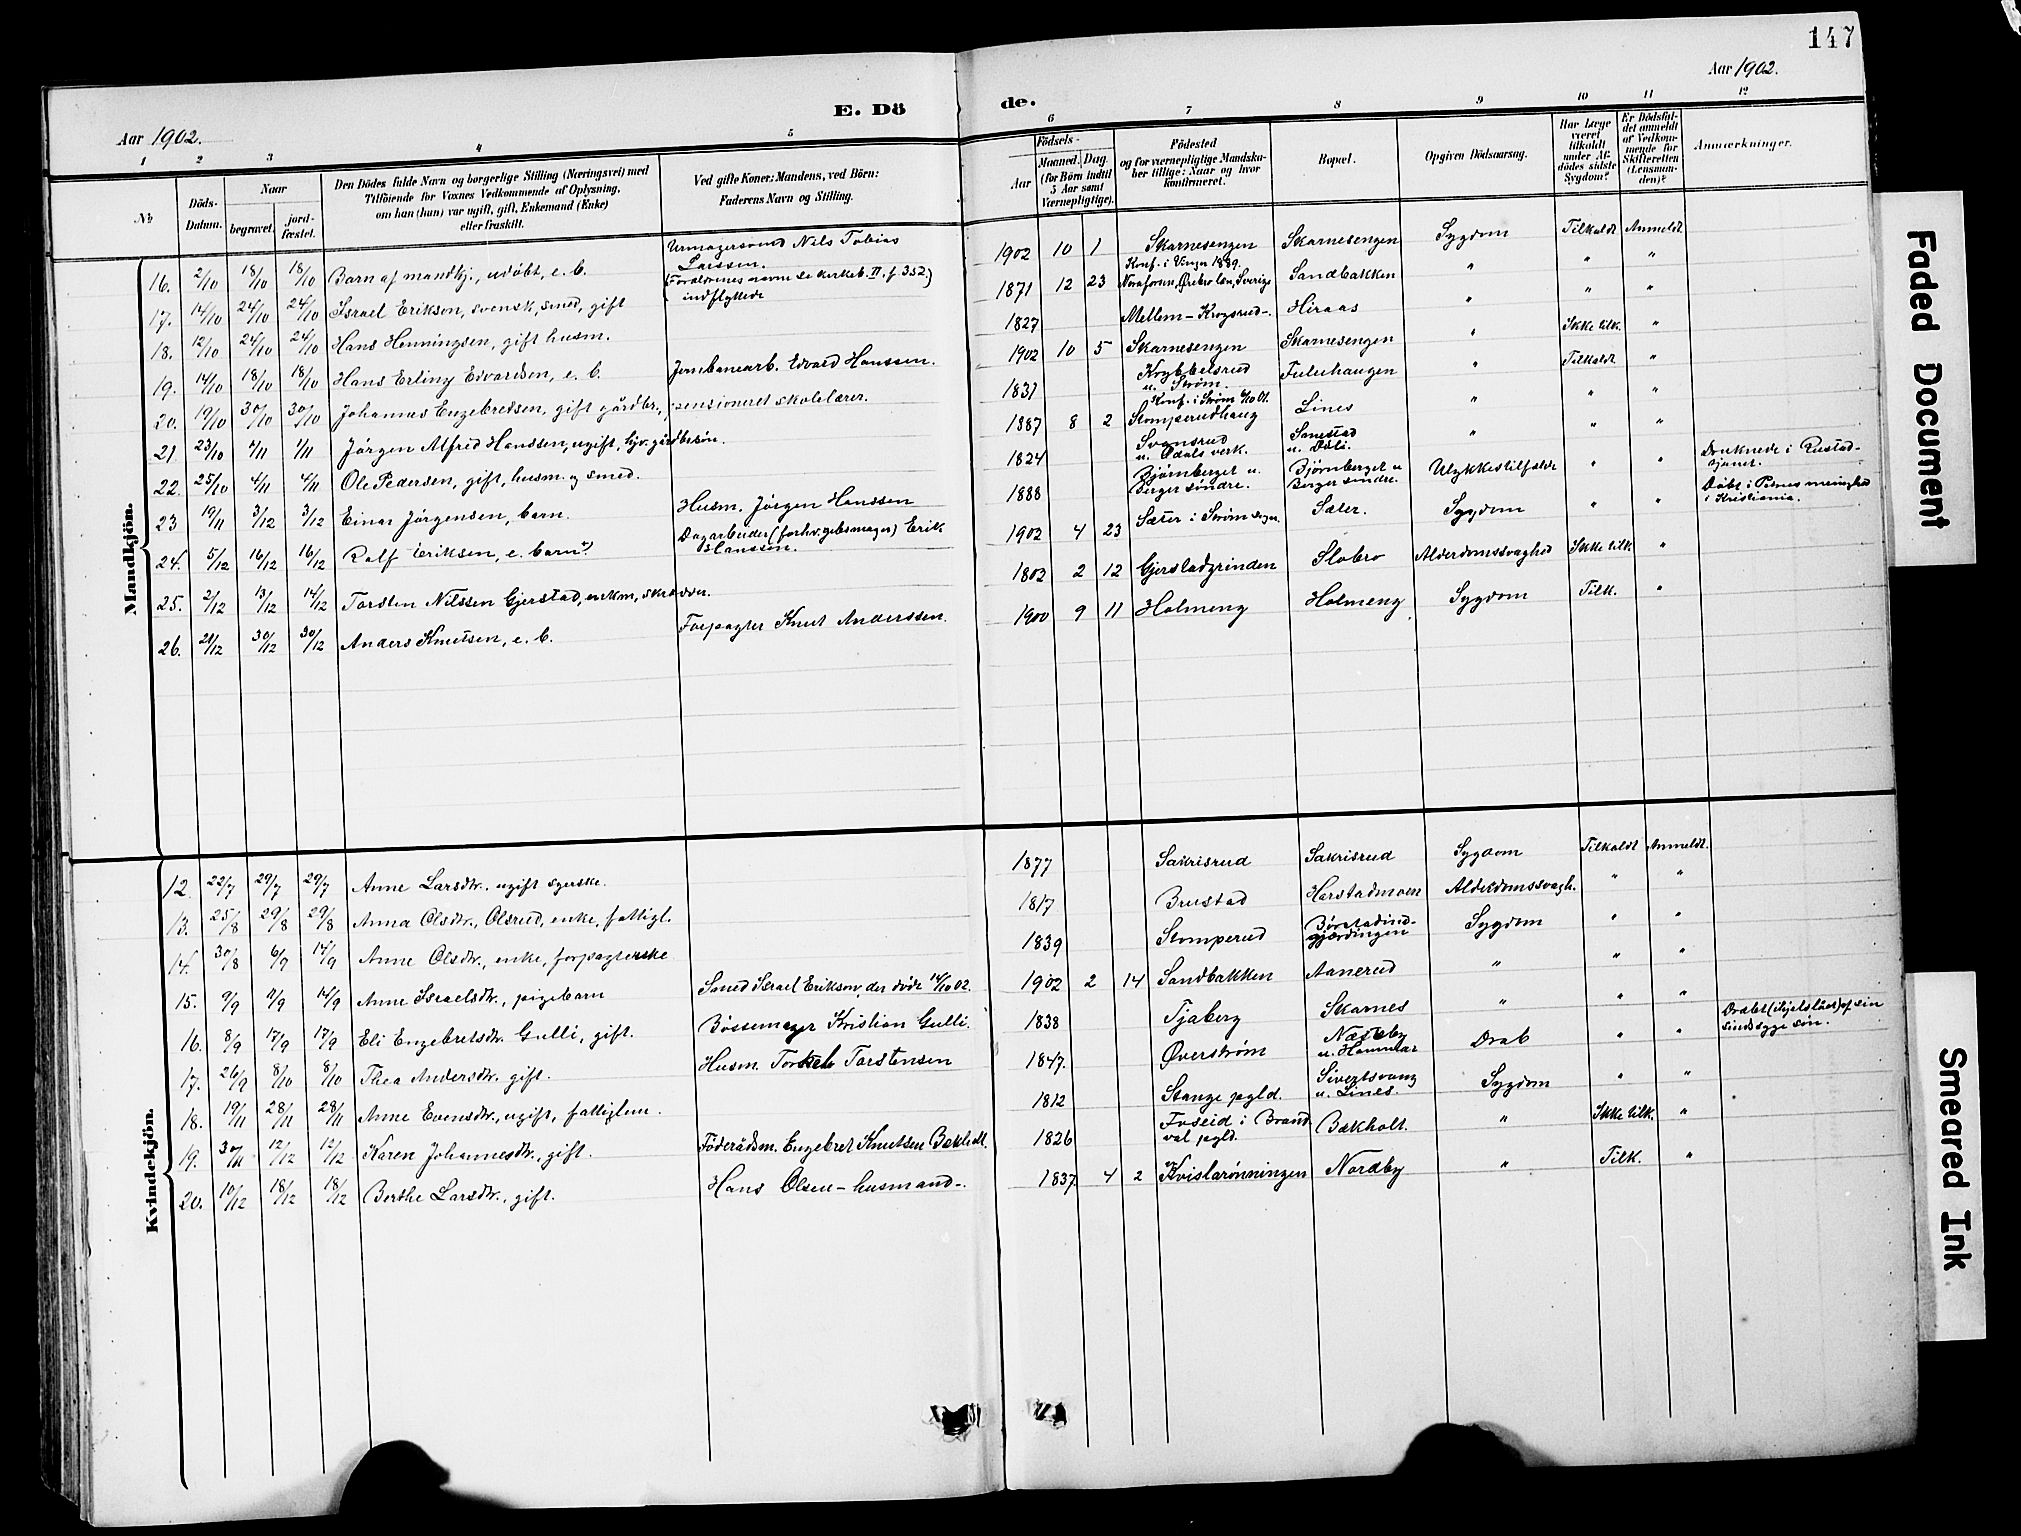 147
E. Dö de.
Aar 1902.
Aar 1902.
1 2 3 4 5 6 7 8 9 10 11 12
No
Döds-Datum.
Naar
begravet.
jord-fæstet.
Den Dödes fulde Navn og borgerlige Stilling (Næringsvei) med
Tilföiende for Voxnes Vedkommende af Oplysning,
om han (hun) var ugift, gift, Enkemand (Enke)
eller fraskilt.
Ved gifte Koner: Mandens, ved Börn:
Faderens Navn og Stilling.
Födsels-
Aar
Maaned. Dag.
(for Börn indtil
5 Aar samt
Værnepligtige).
Födested
og for værnepligtige Mandska-
ber tillige: Naar og hvor
konfirmeret.
Bopæl.
Opgiven Dödsaarsag.
Har Læge
været
tilkaldt
under Af-
dödes sidste
Sygdom?
Er Dödsfal-
det anmeldt
af Vedkom-
mende for
Skifteretten
(Lensman-
den)?
Anmærkninger.
Mandkjön.
16. 2/10 18/10 18/10 Barn af mandkj., udøbt, e. b. Urmagersvend Nils Tobias Larssen. 1902 10 1 Skarnesengen Skarnesengen Sygdom Tilkaldt Anmeldt
17. 14/10 24/10 24/10 Israel Erikson, svensk, smed, gift (Forældrenes navne se kirkeb. II. f. 352.) indflyttede 1871 12 23 Konf. i Vinger 1889. Noraforen, Örebro län, Sverige Sandbakken " " "
18. 12/10 24/10 24/10 Hans Henningsen, gift husm. 1827 Mellem-Krogsrud-. Hiraas " " "
19. 14/10 18/10 18/10 Hans Erling Edvardsen, e. b. Jernbanearb. Edvard Hanssen. 1902 10 5 Skarnesengen Skarnesengen " Ikke tilk. "
20. 19/10 30/10 30/10 Johannes Engebretsen, gift gårdbr., pensioneret skolelærer. 1831 Krybbelsrud u. Strøm. Fuluhaugen " Tilkaldt "
21 23/10 1/11 1/11 Jørgen Alfred Hanssen, ugift, hjv. gårdbrsøn. 1887 8 2 Konf. i Strøm 6/10 01. Stomperudhaug Lines " " "
22. 25/10 4/11 4/11 Ole Pedersen, gift, husm. og smed. 1824 Svensrud u. Odals verk. Sanestad u. Döli. " " "
23 19/11 3/12 3/12 Einar Jørgensen, barn. Husm. Jørgen Hanssen 1888 Bjørnberget u. Berger søndre. Bjørnberget u Berger søndre. Ulykkestilfælde " " Druknede i Rustad-tjernet.
24. 5/12 16/12 16/12 Ralf Eriksen, e. barn Dagarbeider (forhv. gibsmager) Erik Hanssen. 1902 4 23 Sæter i Strøm sogn. Sæter. Sygdom " " Döbt i Petrus menighed i Kristiania.
25. 2/12 13/12 14/12 Torsten Nilssen Gjerstad, enkm, skrædder. 1802 2 12 Gjerstadgrinden Slobro Alderdomssvaghed Ikke tilk. "
26. 21/12 30/12 30/12 Anders Knutsen, e. b. Forpagter Knut Anderssen. 1900 9 11 Holmeng Holmeng Sygdom Tilk. "
Kvindekjön.
12 22/7 29/7 29/7 Anne Larsdtr., ugift syerske. 1877 Sakrisrud Sakrisrud Sygdom Tilkaldt Anmeldt.
13. 25/8 29/8 29/8 Anna Olsdtr., Olsrud, enke, fattigl. 1817 Brustad Harstadmoen Alderdomssvagh. " "
14. 30/8 6/9 14/9 Anne Olsdtr., enke, forpagterske 1839 Stomperud Börstadind-gjærdingen Sygdom " "
15. 9/9 11/9 14/9 Anne Israelsdtr., pigebarn Smed Israel Erikson, der døde 14/10 02. 1902 2 14 Sandbakken Aanerud " " "
16. 8/9 17/9 17/9 Eli Engebretsdtr. Gulli, gift. Bössemager Kristian Gulli. 1838 Tjaberg Skarnes " " "
17. 26/9 8/10 8/10 Thea Andersdtr. gift. Husm. Torsten Torstensen 1847. Øverstrøm Næreby u. Hammar Drab " " Dræbt (ihjelslået) af sin sindssyge søn.
18. 19/11 28/11 28/11 Anne Evensdtr., ugift, fattiglem. 1812 Stange pgld. Sivertsvang u. Lines. Sygdom " "
19. 30/11 12/12 12/12 Karen Johannesdtr., gift. Föderådsm. Engebret Knutsen Bækholt. 1826 Foseid i Brand val pgld. Bækholt. " Ikke tilk. "
20. 10/12 18/12 18/12 Berthe Larsdtr., gift. Hans Olsen - husmand-. 1837 4 2 Kvislarønningen Nordby " Tilk. "
Faded Document
Smeared Ink